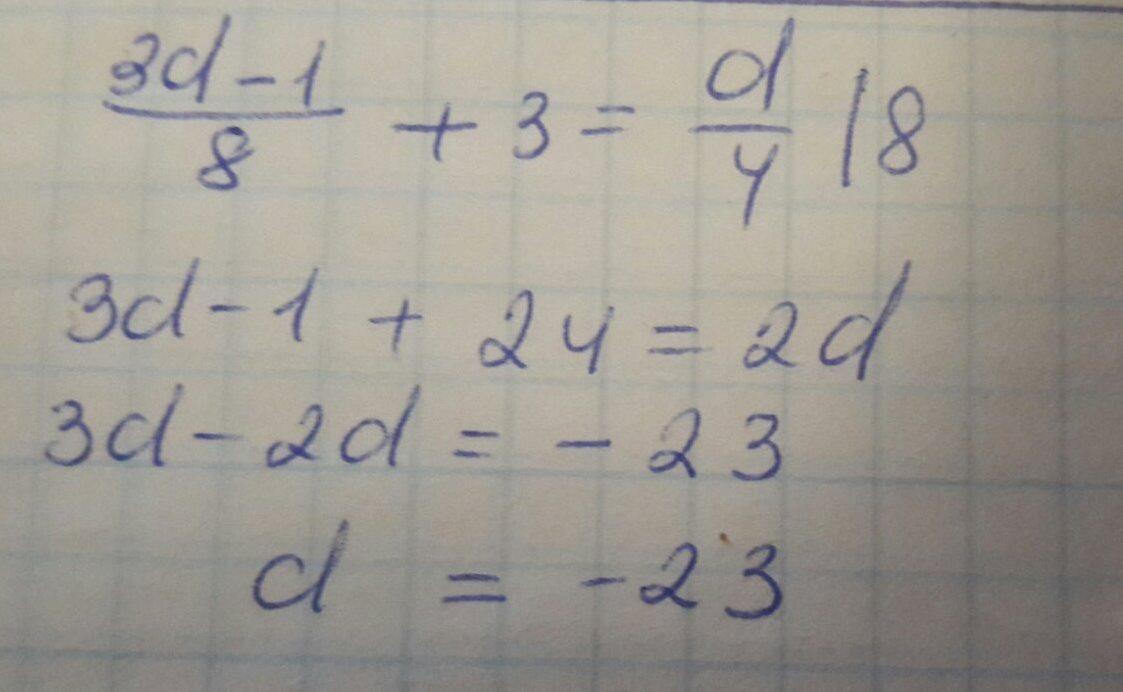 (3d-1)/8 + 3 = d/4 |8
3d-1 + 24 = 2d
3d-2d = -23
d = -23